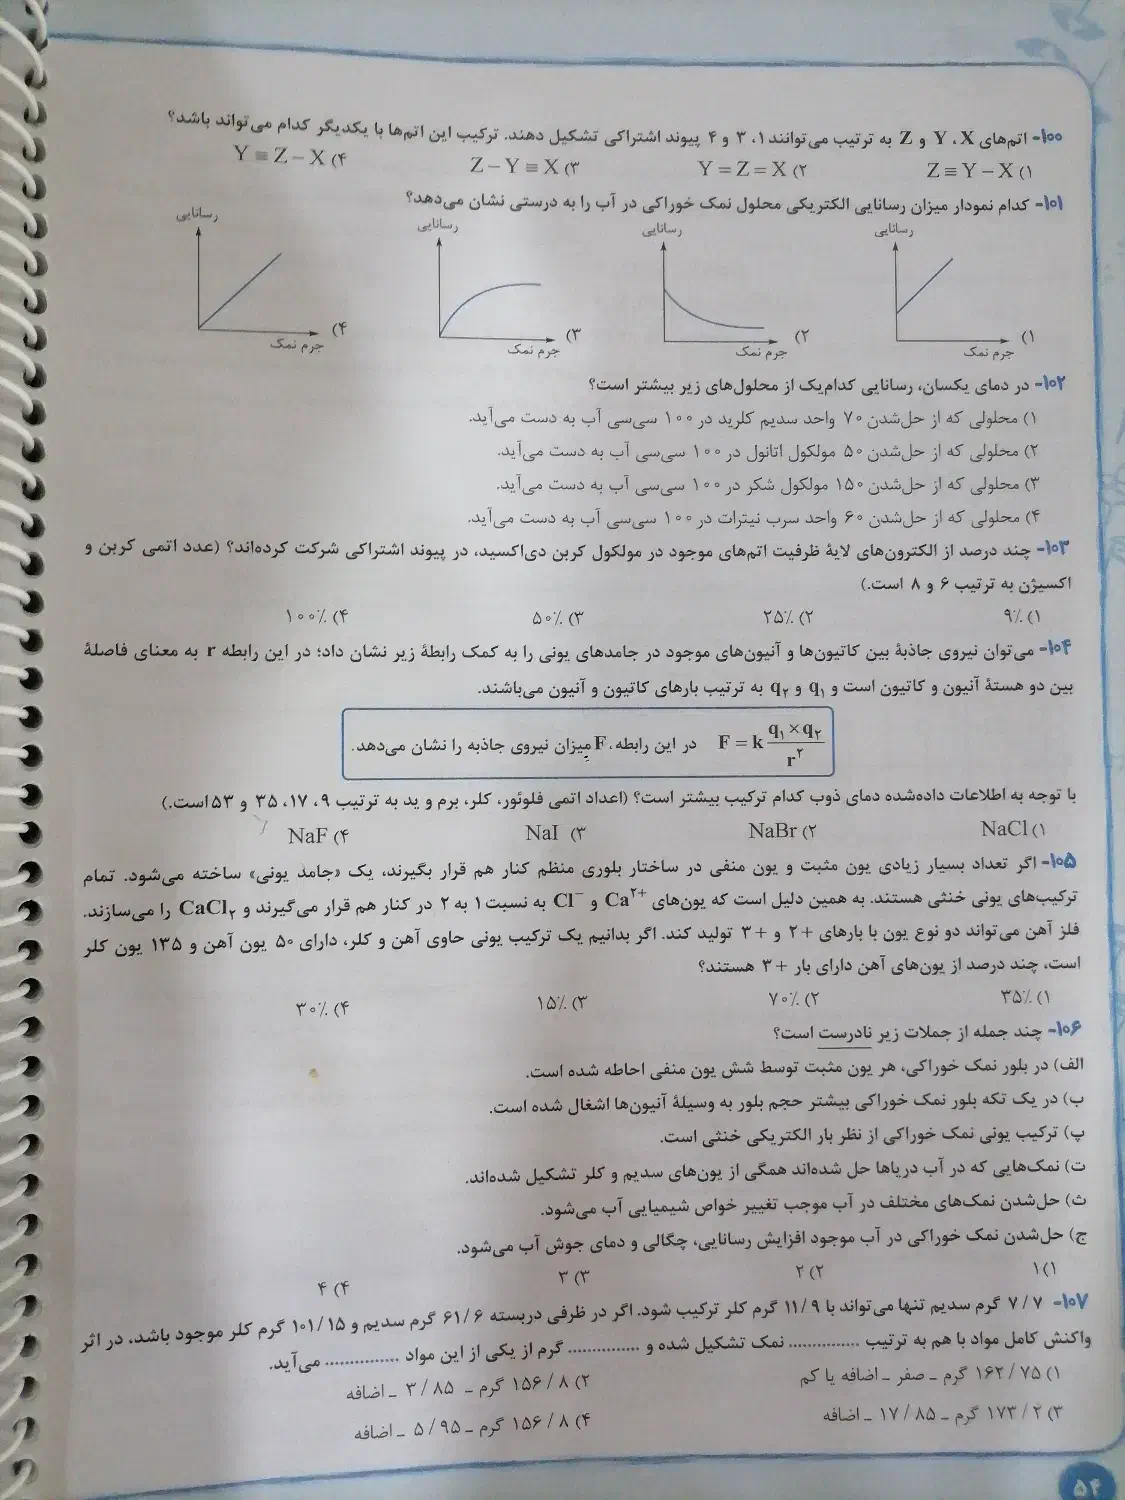 ۱۰۰- اتم‌های X، Y و Z به ترتیب می‌توانند ۱، ۳ و ۴ پیوند اشتراکی تشکیل دهند. ترکیب این اتم‌ها با یکدیگر کدام می‌تواند باشد؟
۱) Z≡Y−X ۲) Y=Z=X ۳) Z−Y≡X ۴) Y≡Z−X
۱۰۱- کدام نمودار میزان رسانایی الکتریکی محلول نمک خوراکی در آب را به درستی نشان می‌دهد؟
رسانایی رسانایی رسانایی رسانایی
۱) ۲) ۳) ۴)
جرم نمک جرم نمک جرم نمک جرم نمک
۱۰۲- در دمای یکسان، رسانایی کدام‌یک از محلول‌های زیر بیشتر است؟
۱) محلولی که از حل‌شدن ۷۰ واحد سدیم کلرید در ۱۰۰ سی‌سی آب به دست می‌آید.
۲) محلولی که از حل‌شدن ۵۰ مولکول اتانول در ۱۰۰ سی‌سی آب به دست می‌آید.
۳) محلولی که از حل‌شدن ۱۵۰ مولکول شکر در ۱۰۰ سی‌سی آب به دست می‌آید.
۴) محلولی که از حل‌شدن ۶۰ واحد سرب نیترات در ۱۰۰ سی‌سی آب به دست می‌آید.
۱۰۳- چند درصد از الکترون‌های لایهٔ ظرفیت اتم‌های موجود در مولکول کربن دی‌اکسید، در پیوند اشتراکی شرکت کرده‌اند؟ (عدد اتمی کربن و
اکسیژن به ترتیب ۶ و ۸ است.)
۱) ۹٪ ۲) ۲۵٪ ۳) ۵۰٪ ۴) ۱۰۰٪
۱۰۴- می‌توان نیروی جاذبهٔ بین کاتیون‌ها و آنیون‌های موجود در جامدهای یونی را به کمک رابطهٔ زیر نشان داد؛ در این رابطه r به معنای فاصلهٔ
بین دو هستهٔ آنیون و کاتیون است و q۱ و q۲ به ترتیب بارهای کاتیون و آنیون می‌باشند.
F = k (q۱×q۲)/r۲ در این رابطه، F میزان نیروی جاذبه را نشان می‌دهد.
با توجه به اطلاعات داده‌شده دمای ذوب کدام ترکیب بیشتر است؟ (اعداد اتمی فلوئور، کلر، برم و ید به ترتیب ۹، ۱۷، ۳۵ و ۵۳ است.)
۱) NaCl ۲) NaBr ۳) NaI ۴) NaF
۱۰۵- اگر تعداد بسیار زیادی یون مثبت و یون منفی در ساختار بلوری منظم کنار هم قرار بگیرند، یک «جامد یونی» ساخته می‌شود. تمام
ترکیب‌های یونی خنثی هستند. به همین دلیل است که یون‌های Ca۲+ و Cl− به نسبت ۱ به ۲ در کنار هم قرار می‌گیرند و CaCl۲ را می‌سازند.
فلز آهن می‌تواند دو نوع یون با بارهای +۲ و +۳ تولید کند. اگر بدانیم یک ترکیب یونی حاوی آهن و کلر، دارای ۵۰ یون آهن و ۱۳۵ یون کلر
است، چند درصد از یون‌های آهن دارای بار +۳ هستند؟
۱) ۳۵٪ ۲) ۷۰٪ ۳) ۱۵٪ ۴) ۳۰٪
۱۰۶- چند جمله از جملات زیر نادرست است؟
الف) در بلور نمک خوراکی، هر یون مثبت توسط شش یون منفی احاطه شده است.
ب) در یک تکه بلور نمک خوراکی بیشتر حجم بلور به وسیلهٔ آنیون‌ها اشغال شده است.
پ) ترکیب یونی نمک خوراکی از نظر بار الکتریکی خنثی است.
ت) نمک‌هایی که در آب دریاها حل شده‌اند همگی از یون‌های سدیم و کلر تشکیل شده‌اند.
ث) حل‌شدن نمک‌های مختلف در آب موجب تغییر خواص شیمیایی آب می‌شود.
ج) حل‌شدن نمک خوراکی در آب موجود افزایش رسانایی، چگالی و دمای جوش آب می‌شود.
۱) ۱ ۲) ۲ ۳) ۳ ۴) ۴
۱۰۷- ۷/۷ گرم سدیم تنها می‌تواند با ۱۱/۹ گرم کلر ترکیب شود. اگر در ظرفی دربسته ۶۱/۶ گرم سدیم و ۱۰۱/۱۵ گرم کلر موجود باشد، در اثر
واکنش کامل مواد با هم به ترتیب ............... نمک تشکیل شده و ............... گرم از یکی از این مواد ............... می‌آید.
۱) ۱۶۲/۷۵ گرم ـ صفر ـ اضافه یا کم ۲) ۱۵۶/۸ گرم ـ ۳/۸۵ ـ اضافه
۳) ۱۷۳/۲ گرم ـ ۱۷/۸۵ ـ اضافه ۴) ۱۵۶/۸ گرم ـ ۵/۹۵ ـ اضافه
۵۴